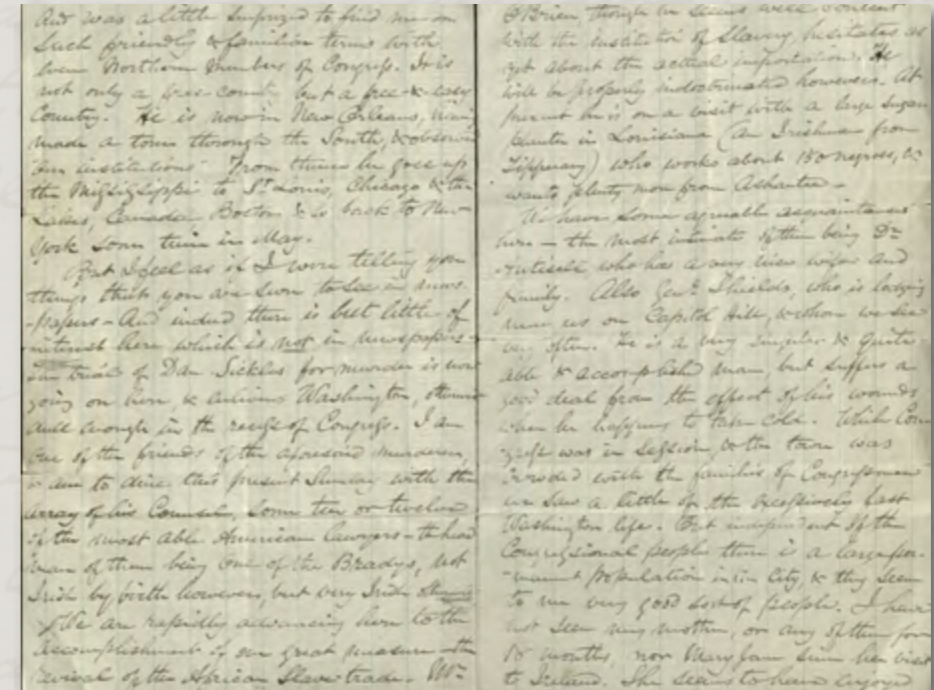 And was a little surprized to find me on
such friendly & familiar terms with
even Northern Members of Congress. It is
not only a free country but a free & easy
Country. He is now in New Orleans, having
made a tour through the South, & observing
our institutions. From thence he goes up
the Mississippi to St Louis, Chicago & the
Lakes, Canada Boston & so back to New-
York some time in May.
But I feel as if I were telling you
things that you are sure to see in news-
-papers - And indeed there is but little of
interest here which is not in newspapers.
The trial of Dan Sickles for murder is now
going on here, & enlivens Washington,
dull enough in the recess of Congress. I am
one of the friends of the aforesaid murderer,
& am to dine this present Sunday with the
array of his Counsel, some ten or twelve
of the most able American lawyers - the head
man of them being one of the Bradys, not
Irish by birth however, but very Irish
We are rapidly advancing here to the
accomplishment of our great measure - the
revival of the African Slave trade. Mr
O'Brien, though he seems well content
with the institution of Slavery, hesitates as
yet about the actual importation. He
will be properly indoctrinated however. At
present he is on a visit with a large Sugar
planter in Louisiana (an Irishman from
Tipperary) who works about 150 negroes, &
wants plenty more from Ashantee -
We have some agreable acquaintances
here - the most intimate of them being Dr
Antisell who has a very nice wife and
family. Also Genl Shields, who is lodging
near us on Capitol Hill, & whom we see
very often. He is a very singular & quite
able & accomplished man, but suffers a
good deal from the effect of his wounds
when he happens to take cold. While Con
gress was in session, & the town was
crowded with the families of Congressmen
we saw a little of the excessively fast
Washington life. But independent of the
Congressional people there is a large per-
-manent population in the City, & they seem
to me very good sort of people. I have
not seen my mother, or any of them for
months, nor Mary Jane since her visit
to Ireland. She seems to have enjoyed